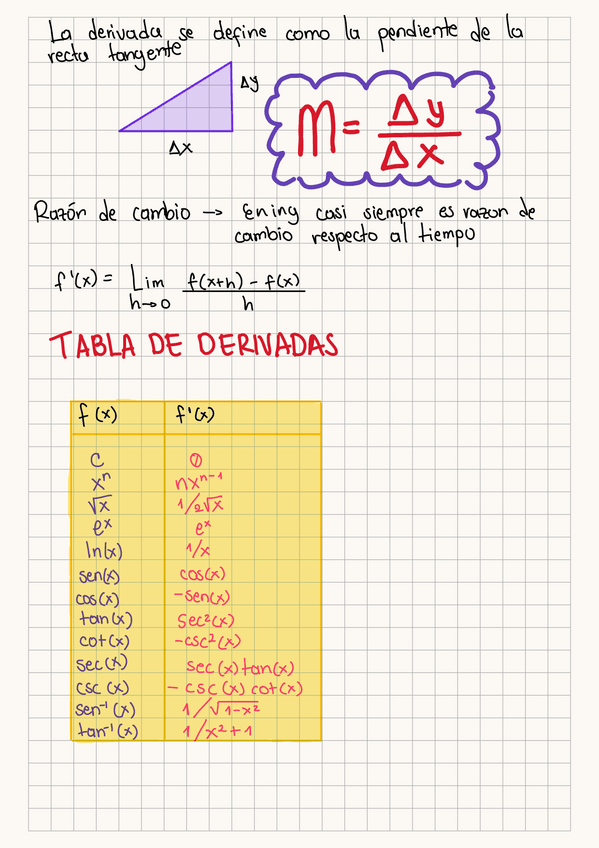 La derivada se define como la pendiente de la
recta tangente
Δy
m = Δy / Δx
Δx
Razón de cambio → En ing casi siempre es razon de
cambio respecto al tiempo
f'(x) = Lim h→0 f(x+h) - f(x) / h
TABLA DE DERIVADAS
f(x) f'(x)
C 0
xⁿ nxⁿ⁻¹
√x 1/2√x
eˣ eˣ
ln(x) 1/x
sen(x) cos(x)
cos(x) -sen(x)
tan(x) sec²(x)
cot(x) -csc²(x)
sec(x) sec(x)tan(x)
csc(x) -csc(x)cot(x)
sen⁻¹(x) 1/√1-x²
tan⁻¹(x) 1/x²+1